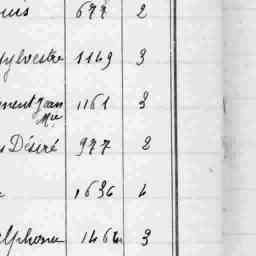 uis 677 2
Sylvestre 1149 3
ment Jean 1161 3
Mie
s Désiré 977 2
e 1636 4
Alphonse 1464 3